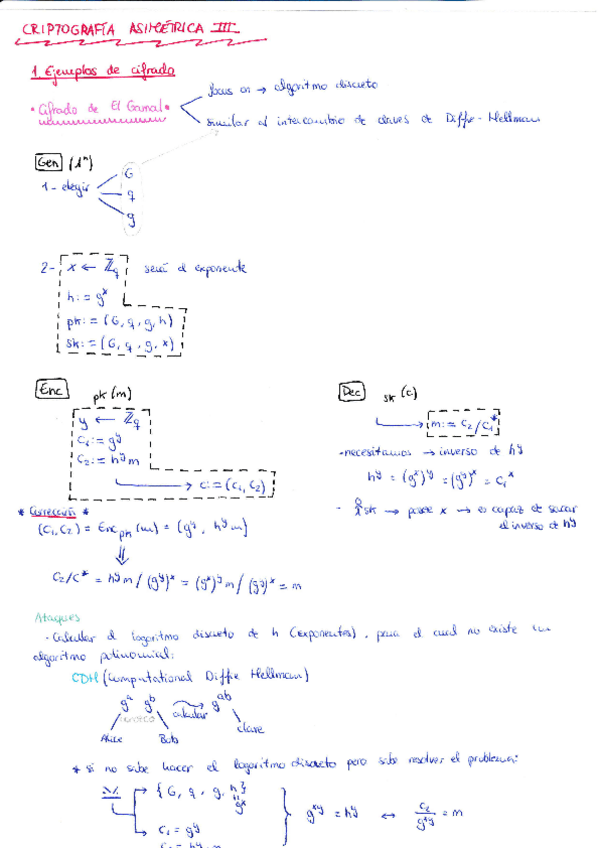 CRIPTOGRAFÍA ASIMÉTRICA III
1. Ejemplos de cifrado
• Cifrado de El Gamal •
focus on → algoritmo discreto
similar al intercambio de claves de Diffie-Hellman
Gen (1ⁿ)
1 - elegir
G
q
g
2- x ← ℤq será el exponente
h := g^x
pk := (G, q, g, h)
sk := (G, q, g, x)
Enc pk (m)
y ← ℤq
C₁ := g^y
C₂ := h^y m
→ c := (c₁, c₂)
Dec sk (c)
→ m := c₂/c₁^x
- necesitamos → inverso de h^y
h^y = (g^x)^y = (g^y)^x = c₁^x
- sk → posee x → es capaz de sacar
el inverso de h^y
* Corrección *
(C₁, C₂) = Enc pk (m) = (g^y, h^y m)
⇓
C₂/C^x = h^y m / (g^y)^x = (g^x)^y m / (g^y)^x = m
Ataques
- Calcular el logaritmo discreto de h (exponentes), para el cual no existe un
algoritmo polinomial:
CDH (Computational Diffie Hellman)
g^a g^b calcular g^ab
Alice Bob clave
* si no sabe hacer el logaritmo discreto pero sabe resolver el problema:
→ { G, q, g, h }
g^x
→ C₁ = g^y
C₂ = h^y m
g^xy = h^y ↔ C₂/g^xy = m